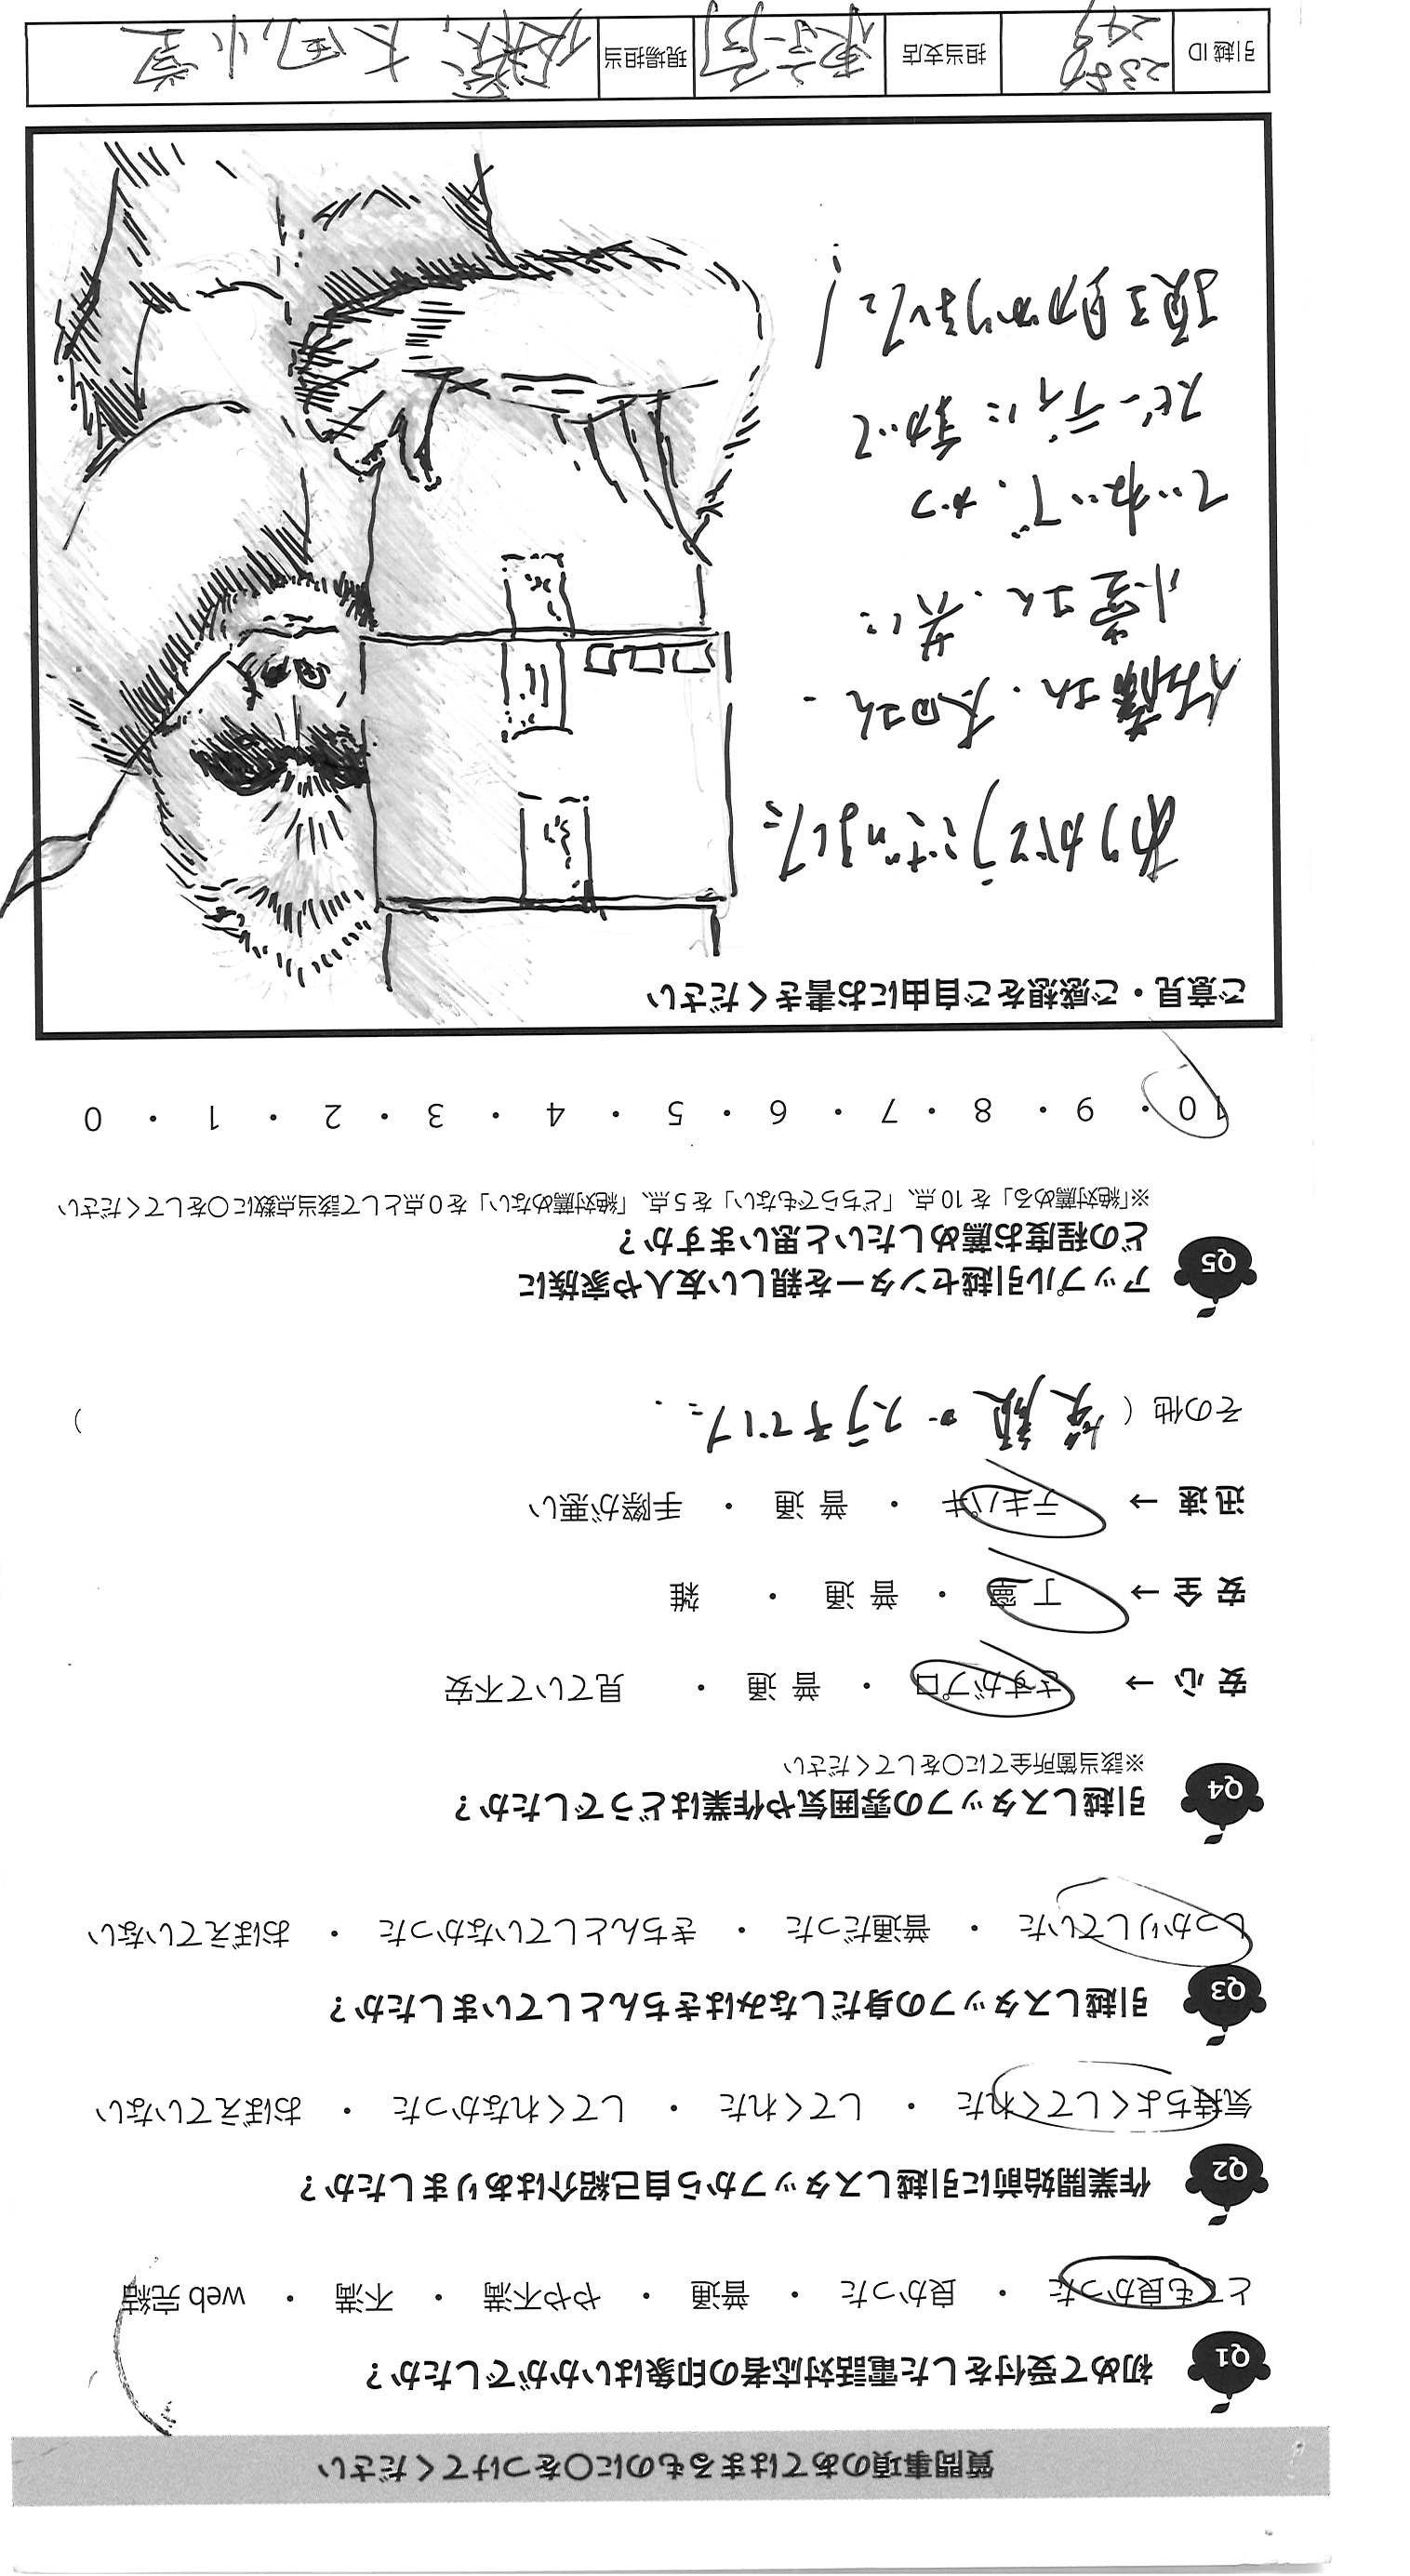 質問事項のあてはまるものに○をつけてください
Q1 初めて受付をした電話対応者の印象はいかがでしたか？
とても良かった ・ 良かった ・ 普通 ・ やや不満 ・ 不満 ・ web 完結
Q2 作業開始前に引越しスタッフから自己紹介はありましたか？
気持ちよくしてくれた ・ してくれた ・ してくれなかった ・ おぼえていない
Q3 引越しスタッフの身だしなみはきちんとしていましたか？
しっかりしていた ・ 普通だった ・ きちんとしていなかった ・ おぼえていない
Q4 引越しスタッフの雰囲気や作業はどうでしたか？
※該当箇所全てに○をしてください
安 心 → さすがプロ ・ 普 通 ・ 見ていて不安
安 全 → 丁 寧 ・ 普 通 ・ 雑
迅 速 → テキパキ ・ 普 通 ・ 手際が悪い
その他（ 笑顔がステキでした. ）
Q5 アップル引越センターを親しい友人や家族に
どの程度お薦めしたいと思いますか？
※「絶対薦める」を 10 点、「どちらでもない」を 5 点、「絶対薦めない」を 0 点として該当点数に○をしてください
10 ・ 9 ・ 8 ・ 7 ・ 6 ・ 5 ・ 4 ・ 3 ・ 2 ・ 1 ・ 0
ご意見・ご感想をご自由にお書きください
ありがとうございました
佐藤さん・太田さん・
小室さん、共に
ていねいで、かつ
スピーディに動いて
頂き助かりました!
引越 ID 担当支店 現場担当 佐藤、太田、小室